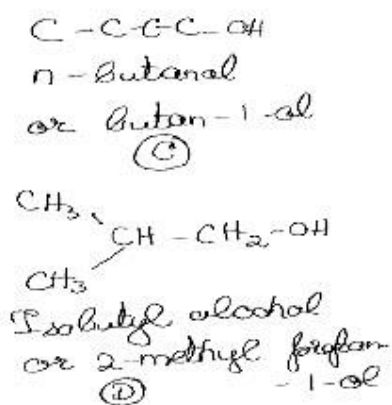 C - C - C - C - OH
n - butanol
or butan - 1 - ol
C
CH3
CH - CH2 - OH
CH3
Isobutyl alcohol
or 2-methyl propan
- 1 - ol
D